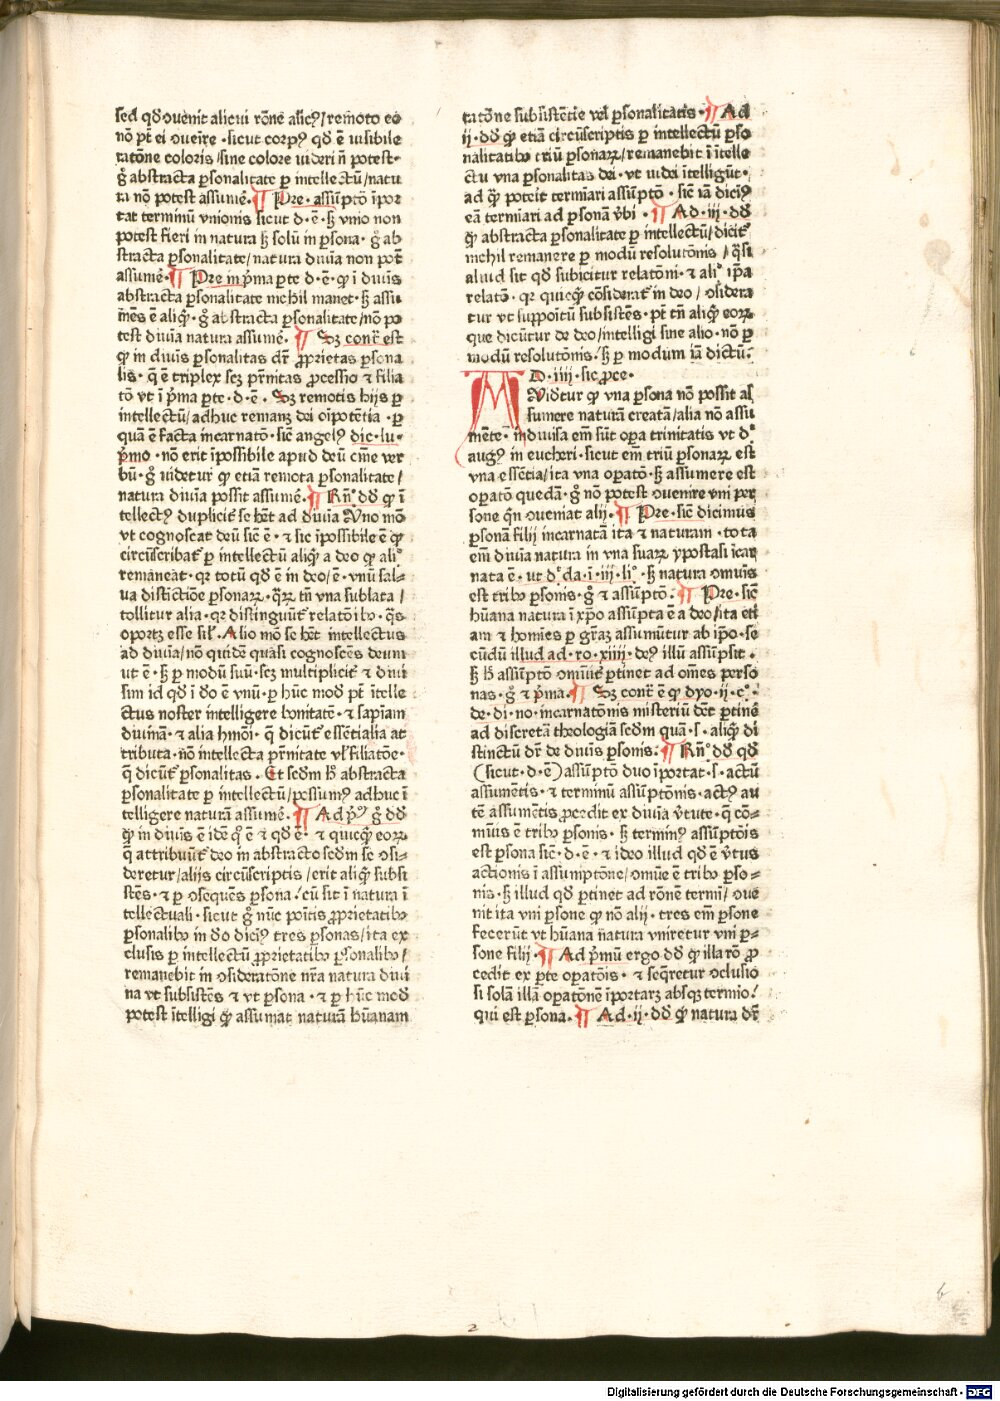 sed qď ꝯuenit alicui rōne alicꝰ/ remoto eo
nō pt̄ ei ꝯueīre · sicut corpꝰ qď ē uisibile
ratōne coloris / sine colore uideri n̄ potest ·
g̊ abstracta ꝑsonalitate ꝑ intellectū / natu
ra nō potest assumē. ¶ Pre · assūptō īpor
tat terminū vnionis sicut d · ē · ꝫ vnio non
potest fieri in natura ꝫ solū in ꝑsona · g̊ ab
stracta ꝑsonalitate / natura diuīa non pot̄
assumē · ¶ Pre in p̄ma ꝑte d · ē · ꝙ ī diuīs
abstracta ꝑsonalitate nichil manet · ꝫ assu
mēs ē aliꝙ̄ · g̊ abstracta ꝑsonalitate / nō po
test diuīa natura assumē. ¶ Sꝫ contͬ est
ꝙ in diuīs ꝑsonalitas dr̄ ꝓprietas ꝑsona
lis · q̄ ē triplex scꝫ pr̄nitas ꝓcessio ⁊ filia
tō vt ī p̄ma ꝑte · d · ē · Sꝫ remotis hijs ꝑ
intellectū / adhuc remanꝫ dei oīpotētia · ꝑ
quā ē facta incarnatō · sic̄ angelꝰ dic · lu ·
p̄mo · nō erit īpossibile apud deū om̄e ver
bū · g̊ videtur ꝙ etiā remota ꝑsonalitate /
natura diuīa possit assumē · ¶ Rn̄° dď ꝙ ī
tellectꝰ duplicit̄ se hēt ad diuīa Vno mō
vt cognoscat deū sic̄ ē · ⁊ sic īpossibile ē ꝙ
circūscribat̄ ꝑ intellectū aliꝙ̄ a deo ꝙ ali°
remāneat · qr totū qď ē in deo / ē · vnū sal-
ua distinctiōe ꝑsonaꝝ · q̄ꝝ tn̄ vna sublata /
tollitur alia · qr distinguūt̄ relatōibꝰ · q̄s
oportꝫ esse sil̄ · Alio mō se hēt intellectus
ad diuīa / nō quidē quasi cognoscēs deum
ut ē · ꝫ ꝑ modū suū · scꝫ multiplicit̄ ⁊ diui
sim id qď ī do ē vnū · ꝑ hūc moď pt̄ ītelle
ctus noster intelligere bonitatē · ⁊ sapīam
diuinā · ⁊ alia hmōi · q̄ dicūt̄ essētialia at
tributa · nō intellecta pr̄nitate vl̄ filiatōe ·
q̄ dicūt̄ ꝑsonalitas · Et scďm h° abstracta
ꝑsonalitate ꝑ intellectū / possumꝰ adhuc ī
telligere naturā assumē. ¶ Ad p̄ꝰ g̊ dď
ꝙ in diuīs ē idē q° ē ⁊ qď ē · ⁊ quicꝙ̄ eoꝝ
q̄ attribuūt̄ deo in abstracto scďm se ꝯsi-
deretur / alijs circūscriptis / erit aliꝙ̄ subsi
stēs · ⁊ ꝑ ꝯsequēs ꝑsona / cū sit ī natura ī
tellectuali · sicut g̊ nūc poītis ꝓprietatibꝰ
ꝑsonalibꝰ in do dicīꝰ tres ꝑsonas / ita ex
clusis ꝑ intellectū ꝓprietatibꝰ ꝑsonalibꝰ /
remanebit in ꝯsideratōne nr̄a natura diui
na vt subsistēs ⁊ vt ꝑsona · ⁊ ꝑ hūc moď
potest ītelligi ꝙ̄ assumat naturā hūanam
ratōne subsistētie vel ꝑsonalitatis · ¶ Ad
ij · dď ꝙ̄ etiā circūscriptis ꝑ intellectū ꝑso
nalitatibꝰ triū ꝑsonaꝝ / remanebit ī ītelle
ctu vna ꝑsonalitas dei · vt iudei ītelligūt ·
ad q̄ꝫ poterit termiari assūptō · sic̄ iā dicīꝰ
eā termiari ad ꝑsonā v̄bi · ¶ Ad · iij · dď
ꝙ̄ abstracta ꝑsonalitate ꝑ intellectū / dicit̄
nichil remanere ꝑ modū resolutōnis / q̄si
aliud sit qď subicitur relatōni · ⁊ ali° ip̄a
relatō · qr quicꝙ̄ cōsiderat̄ in deo / ꝯsidera
tur vt suppoītū subsistēs · pt̄ tn̄ aliꝙ̄ eoꝝ
que dicūtur de deo / intelligi sine alio · nō ꝑ
modū resolutōnis / ꝫ ꝑ modum iā dictū ·
AD · iiij · sic ꝓce ·
Vidtur ꝙ vna ꝑsona nō possit as
sumere naturā creatā / alia nō assu
mēte · īdiuisa em̄ sūt oꝑa trinitatis vt d°
augꝰ in encheri · sicut em̄ triū ꝑsonaꝝ est
vna essētia / ita vna oꝑatō · ꝫ assumere est
oꝑatō quedā · g̊ nō potest ꝯuenire vni per
sone q̄n ꝯueniat alij · ¶ Pre · sic̄ dicimus
ꝑsonā filij incarnatā ita ⁊ naturam · tota
em̄ diuīa natura in vna suaꝝ ypostasī īcar
nata ē · ut d° da · ī · iij · li° · ꝫ natura ꝯmuīs
est tribꝰ ꝑsonis · g̊ ⁊ assūptō · ¶ Pre · sic̄
hūana natura ī xp̄o assūpta ē a deo / ita eti
am ⁊ homīes ꝑ gr̄az assumūtur ab ip̄o · se
cūdū illud ad · ro · xiiij · deꝰ illū assūpsit ·
ꝫ h̄ assūptō om̄uīt̄ ꝑtinet ad om̄es perso
nas · g̊ ⁊ p̄ma · ¶ Sꝫ contͬ ē ꝙ dyo · ij · c° ·
de · di · no · incarnatōnis misteriū dc̄t ꝑtinē
ad discretā theologiā scďm quā · s · aliꝙ̄ di
stinctū dr̄ de diuīs ꝑsonis · ¶ Rn̄° dď qď
(sicut · d · ē) assūptō duo īportat · s · actū
assumētis · ⁊ terminū assūptōnis · actꝰ au
tē assumētis ꝓcedit ex diuīa v̄tute · q̄ cō-
mūis ē tribꝰ ꝑsonis · ꝫ terminꝰ assūptōīs
est ꝑsona sic̄ · d · ē · ⁊ ideo illud qď ē v̄tus
actionis ī assumptōne / omūe ē tribꝰ ꝑso-
nis · ꝫ illud qď ꝑtinet ad rōnē termī / ꝯue
nit ita vni ꝑsone ꝙ nō alij · tres em̄ ꝑsone
fecerūt vt hūana natura vniretur vni ꝑ-
sone filij · ¶ Ad p̄mū ergo dď ꝙ illa rō ꝓ
cedit ex ꝑte oꝑatōis · ⁊ seq̄retur ꝯclusio
si solā illā oꝑatōnē īportarꝫ absqꝫ termīo /
qui est ꝑsona · ¶ Ad · ij · dď ꝙ̄ natura dr̄
2
6
Digitalisierung gefördert durch die Deutsche Forschungsgemeinschaft - DFG